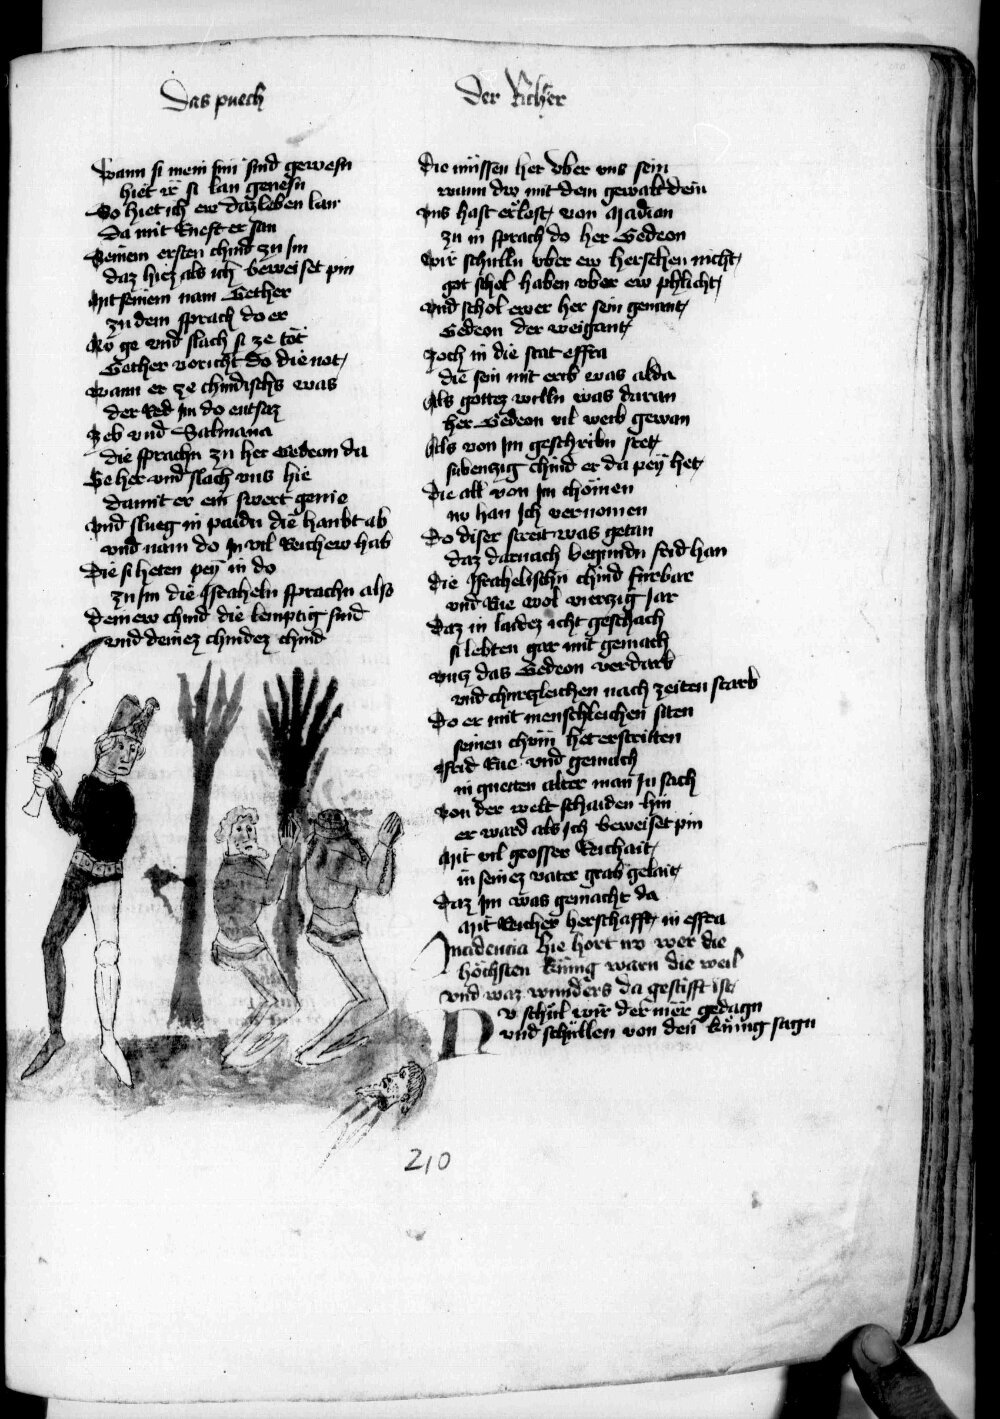 Das puech
Der Richer
Wann si mein sun sind gewesn
hiet ir si lan genesn
So hiet ich ew daz leben lan
Da mit rueft er san
Seinem ersten chind zu Im
daz hiez als ich beweiset pin
Mit seinem nam Gether
zu dem sprach do er
No ge vnd slach si ze tot
Gether voricht do die not
wann er ze chindischs was
der Red Im do entsaz
Zeb vnd Salmana
die sprachn zu her Gedeon da
Ge her vnd slach vns hie
damit er ein swert genie
Vnd slueg in paidn die haubt ab
vnd nam do In vil Reichew hab
Die si heten pey in do
zu Im die Israheln sprachn also
Deinew chind die kemptig sind
vnd deinez chindez chind
Die müssen her vber vns sein
wann dw mit dem gewalt dein
Vns hast erlost von Madian
zu in sprach do her Gedeon
Wir schulln vber ew herschen nicht
got schol haben vber ew phlicht
Vnd schol ewer her sein genant
Gedeon der weigant
Zoch in die stat effra
die sein mit erib was alda
Als gottez willn was daran
her Gedeon vil weib gewan
Als von Im geschribn stet
sibenzig chind er da pey het
Die all von Im chömen
nv han Ich vernomen
Do diser streit was getan
daz darnach begundn seid han
Die Israhelischn chind fürbar
vnd Rue wol vierzig Jar
Daz in laidez icht geschach
si lebten gar mit gemach
vncz das Gedeon verdarb
vnd churczleichen nach zeiten starb
Do er mit menschleichen siten
seinen chriü het erstriten
seid Rue vnd gemach
in gueten alter man In sach
Von der welt schaiden hin
er ward als Ich beweiset pin
Mit vil grosser Reichait
in seinez vater grab gelait
Daz Im was gemacht da
Mit Reicher herschafft in effra
Incidencia hie hort nv wer die
höchsten künig warn die weil
vnd waz wunders da gestifft ist
Nv schül wir der mër gedagn
vnd schüllen von den küning sagn
210